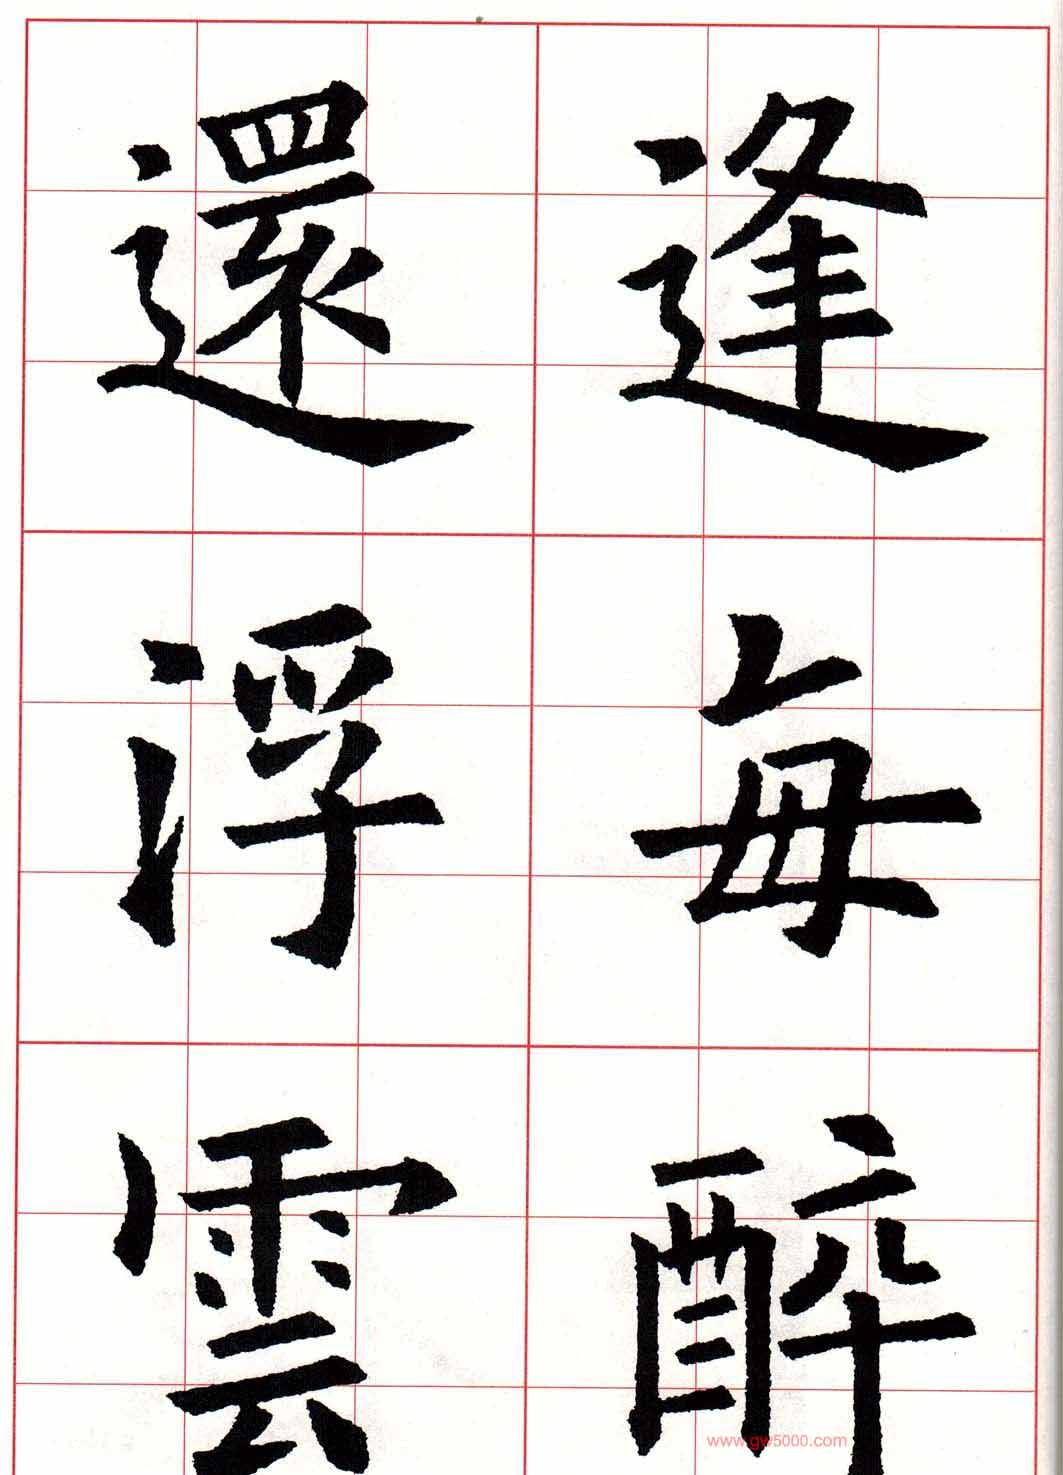 逢每醉
還浮雲
www.gw5000.com